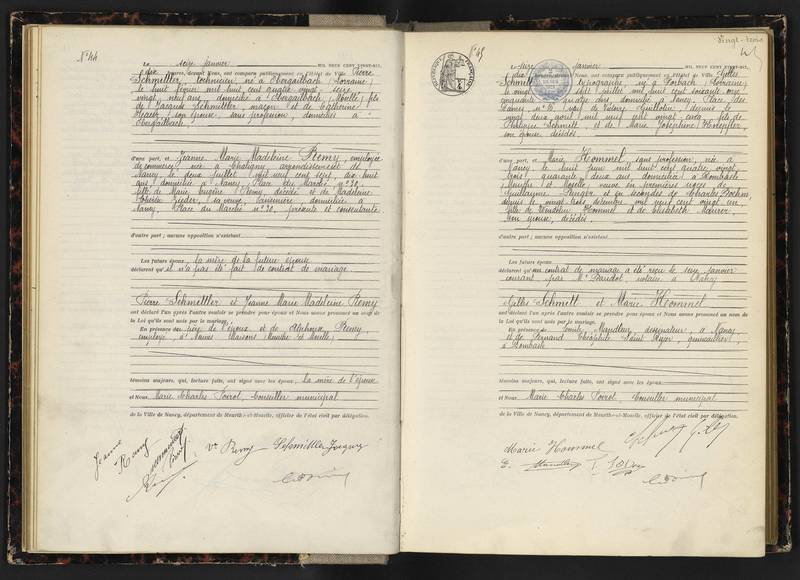 N° 44
Le seize janvier MIL NEUF CENT VINGT-SIX,
à dix heures, devant Nous, ont comparu publiquement en l'Hôtel de Ville Pierre
Schmeltler, technicien, né à Obergailbach (Lorraine)
le huit février mil huit cent quatre vingt seize
vingt neuf ans domicilié à Obergailbach, (Moselle) fils
de Jacques Schmeltler, maçon et de Catherine
son épouse, sans profession, domiciliés à
Obergailbach
d'une part, et Jeanne Marie Madeleine Remy, employée
de commerce née à Chaligny arrondissement de
Nancy le deux juillet mil neuf cent sept, dix huit
ans, domiciliée à Nancy, Place du Marché n° 30,
fille de Marie Eugène Remy, décédé et de Madeleine
sa veuve, domiciliée à
Nancy, Place du Marché n° 30, présente et consentante
d'autre part; aucune opposition n'existant
Les futurs époux et la mère de la future épouse
déclarent qu'il n'a pas été fait de contrat de mariage
Pierre Schmeltler et Jeanne Marie Madeleine Remy
ont déclaré l'un après l'autre vouloir se prendre pour époux et Nous avons prononcé au nom de
la Loi qu'ils sont unis par le mariage.
En présence de frère de l'épouse et de Remy,
employé à Maisons (Meurthe et Moselle)
témoins majeurs, qui, lecture faite, ont signé avec les époux, la mère de l'épouse
et Nous, Marie Charles Poirot, Conseiller municipal
de la Ville de Nancy, département de Meurthe-et-Moselle, officier de l'état civil par délégation.
Jeanne Remy
Vve Remy
Schmittler Jacques
Vingt-trois
N° 45
Le seize janvier MIL NEUF CENT VINGT-SIX,
à dix heures, devant Nous, ont comparu publiquement en l'Hôtel de Ville Gilles
Schmitt, né à Forbach (Lorraine)
le vingt sept juillet mil huit cent soixante onze
cinquante quatre ans, domicilié à Nancy, Place des
Dames, n° 13, veuf de depuis le
vingt deux avril mil neuf cent vingt cinq fils de
Philippe Schmitt, et de Marie Joséphine
son épouse décédés
d'une part, et Marie Hommel, sans profession, née à
Nancy le huit juin mil huit cent quatre vingt
trois quarante deux ans domiciliée à Dombasle
(Meurthe et Moselle), veuve en premières noces de
Guillaume et en secondes de Charles
depuis le vingt trois décembre mil neuf cent vingt un
fille de Hommel et de Elisabeth Maurer,
son épouse, décédés
d'autre part; aucune opposition n'existant
Les futurs époux
déclarent qu'un contrat de mariage a été reçu le seize janvier
courant par Me notaire à Nancy
Gilles Schmitt et Marie Hommel
ont déclaré l'un après l'autre vouloir se prendre pour époux et Nous avons prononcé au nom de
la Loi qu'ils sont unis par le mariage.
En présence de Emile Mandleur, dessinateur, à Nancy
et de Fernand Théophile Saint quincaillier,
à Dombasle
témoins majeurs, qui, lecture faite, ont signé avec les époux
et Nous, Marie Charles Poirot, Conseiller municipal
de la Ville de Nancy, département de Meurthe-et-Moselle, officier de l'état civil par délégation.
Marie Hommel